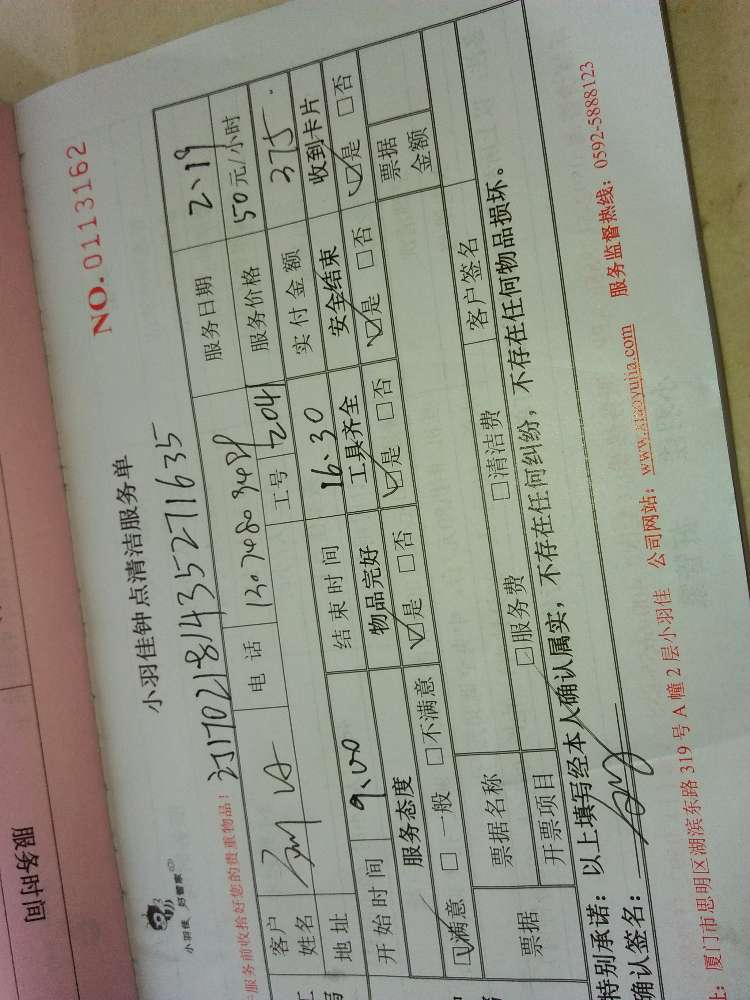 小羽佳 好管家
小羽佳钟点清洁服务单
NO.0113162
服务前收拾好您的贵重物品!
订1702181435271635
客户姓名 电话 服务日期 2、19
地址 工号 2041 服务价格 50元/小时
开始时间 9:00 结束时间 16:30 实付金额 375.
服务态度 物品完好 工具齐全 安全结束 收到卡片
☑满意 □一般 □不满意 ☑是 □否 ☑是 □否 ☑是 □否 ☑是 □否
票据 票据名称 票据金额
开票项目 ☑服务费 □清洁费 客户签名
特别承诺:以上填写经本人确认属实,不存在任何纠纷,不存在任何物品损坏。
确认签名:
址:厦门市思明区湖滨东路319号A幢2层小羽佳 公司网站:www.xiaoyujia.com 服务监督热线:0592-5888123
服务时间